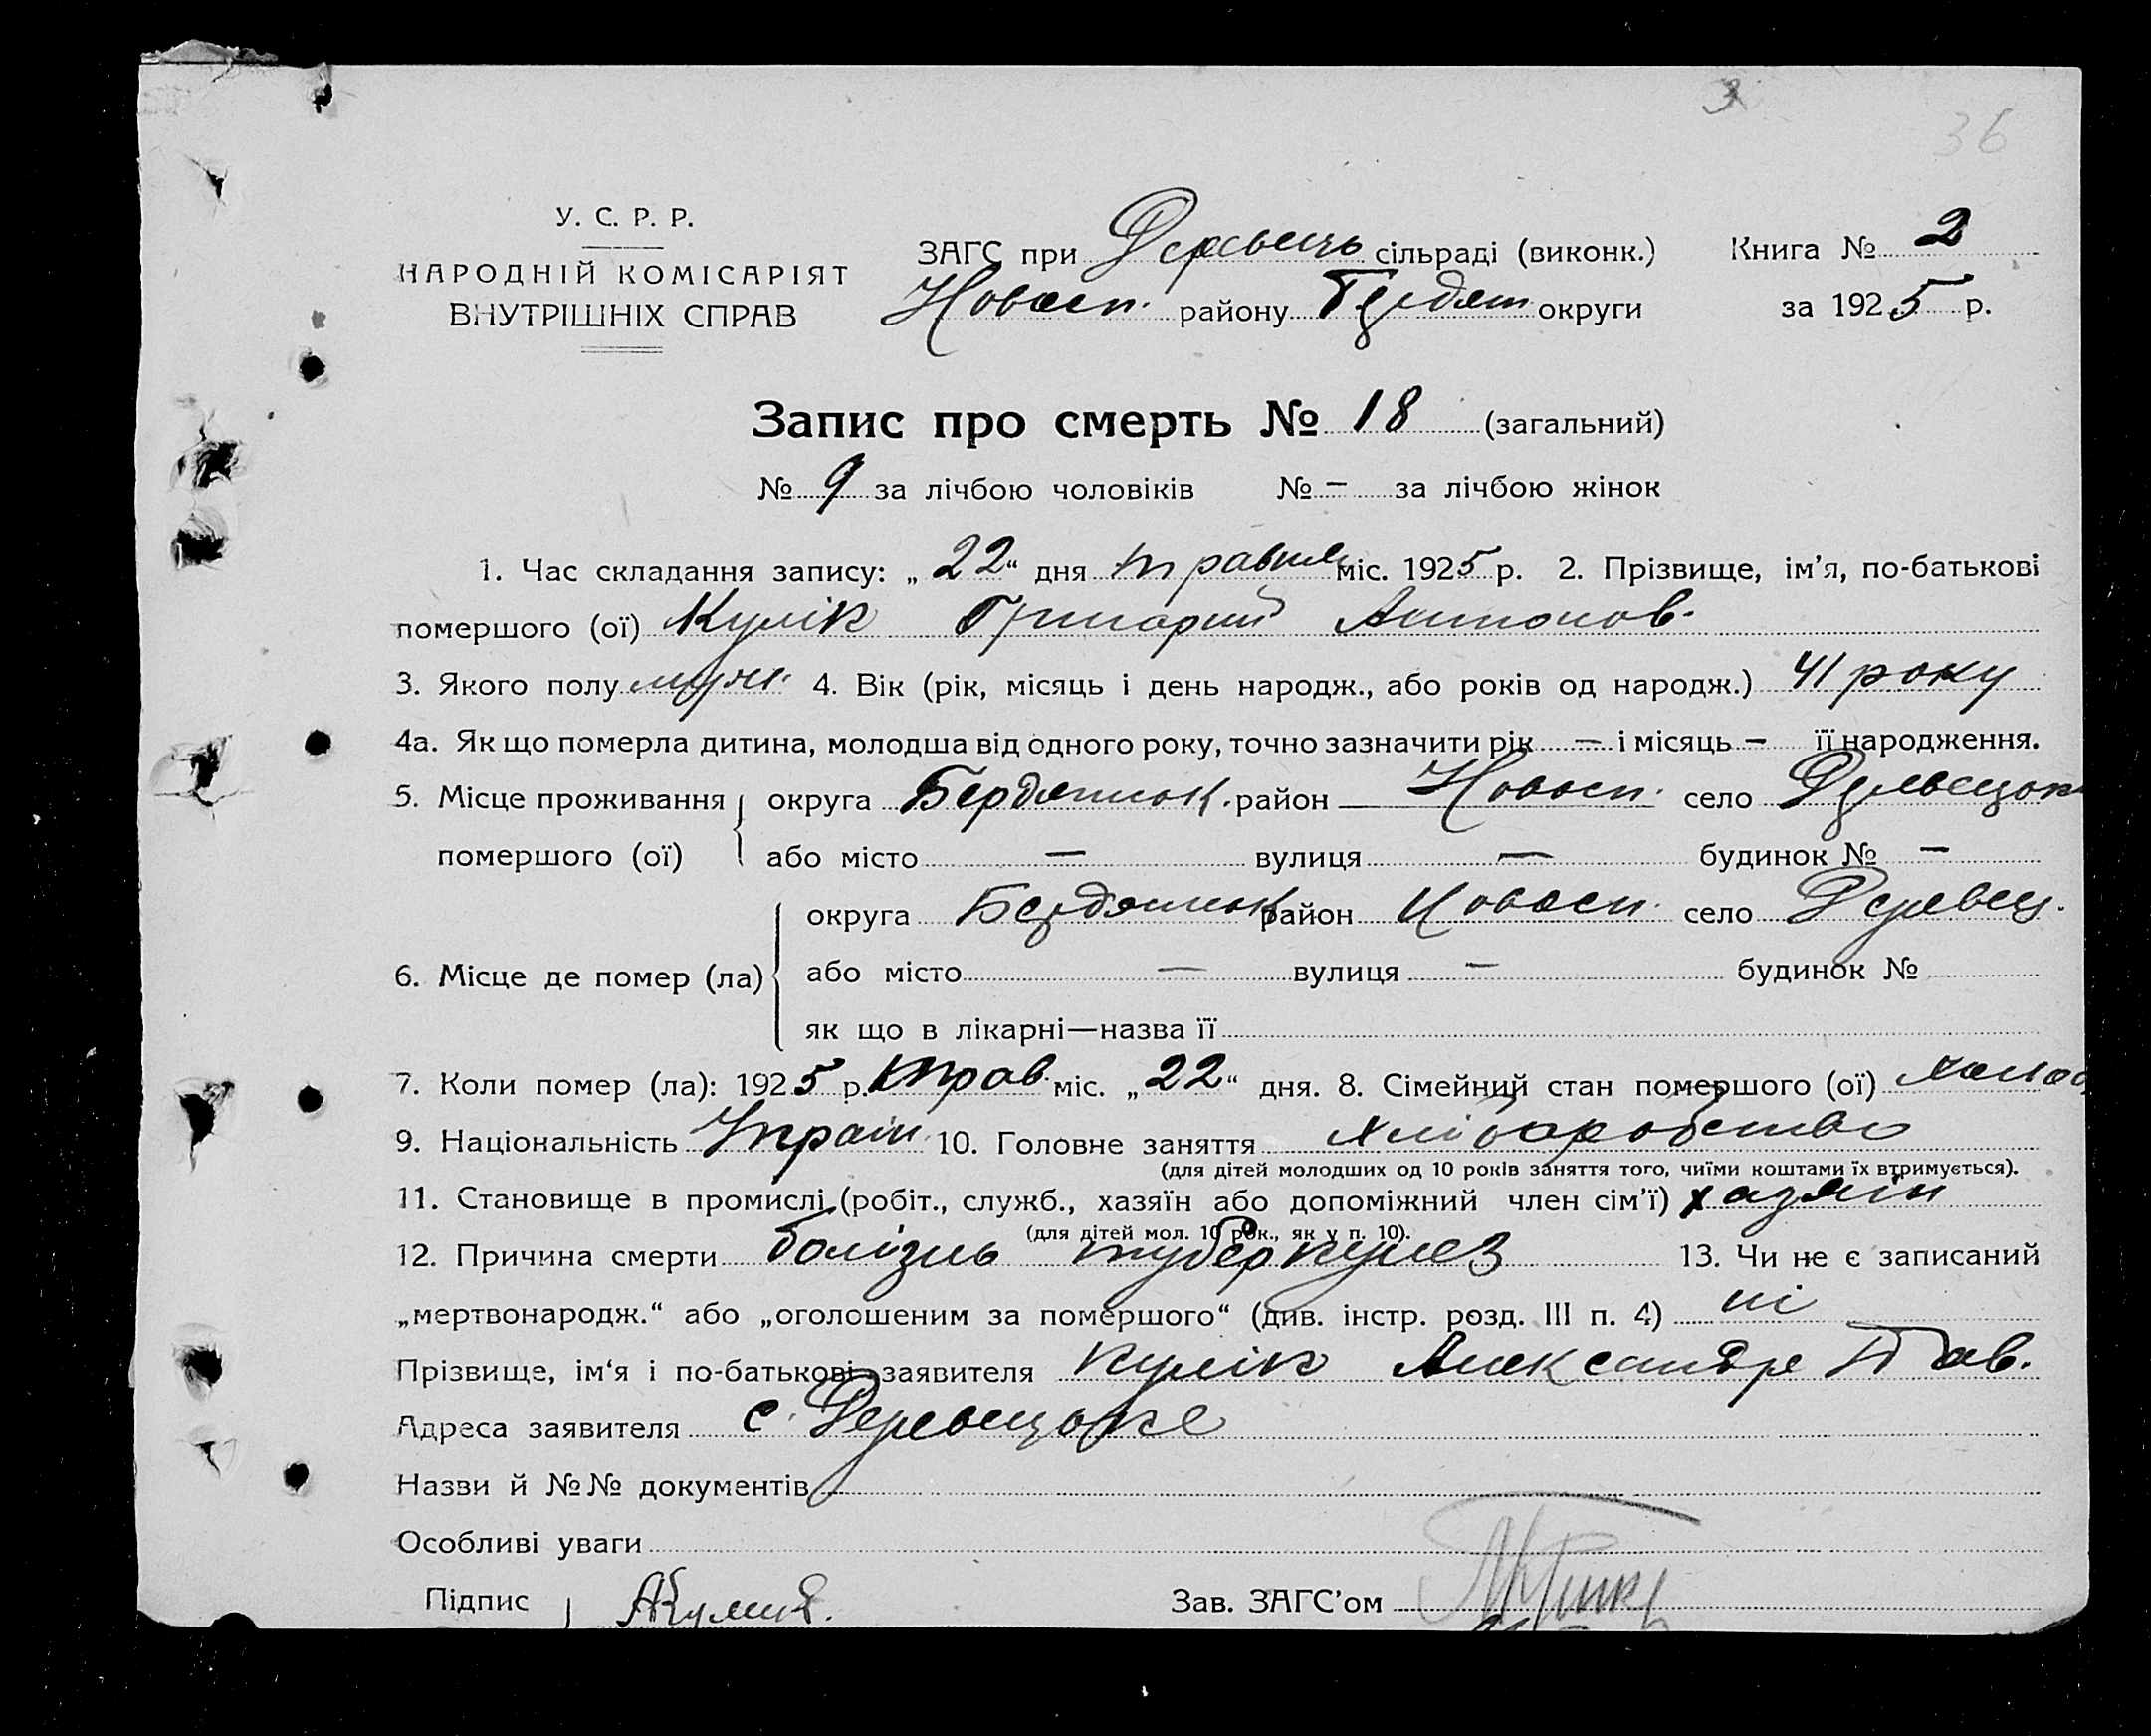 36
У. С. Р. Р.
НАРОДНІЙ КОМІСАРІЯТ
ВНУТРІШНІХ СПРАВ
ЗАГС при сільраді (виконк.) Книга № 2
Новосп. району Бердян округи за 1925 р.
Запис про смерть № 18 (загальний)
№ 9 за лічбою чоловіків № – за лічбою жінок
1. Час складання запису: „22“ дня травня міс. 1925 р. 2. Прізвище, ім’я, по-батькові
помершого (ої) Кулік Григорий Антонов.
3. Якого полу муж. 4. Вік (рік, місяць і день народж., або років од народж.) 41 року
4а. Як що померла дитина, молодша від одного року, точно зазначити рік — і місяць – її народження.
5. Місце проживання округа Бердянськ. район Новосп. село
помершого (ої) або місто — вулиця — будинок № —
округа Бердянськ район Новосп. село Деревец.
6. Місце де помер (ла) або місто — вулиця — будинок №
як що в лікарні—назва її
7. Коли помер (ла): 1925 р. трав. міс. „22“ дня. 8. Сімейний стан помершого (ої)
9. Національність Украін. 10. Головне заняття хліборобство
(для дітей молодших од 10 років заняття того, чиїми коштами їх втримується).
11. Становище в промислі (робіт., служб., хазяїн або допоміжний член сім’ї) хазяїн
(для дітей мол. 10 рок., як у п. 10).
12. Причина смерти болізнь туберкульоз 13. Чи не є записаний
„мертвонародж.“ або „оголошеним за помершого“ (див. інстр. розд. III п. 4) ні
Прізвище, ім‘я і по-батькові заявителя Кулік Александр Пав.
Адреса заявителя с.
Назви й №№ документів
Особливі уваги
Підпис АКулик. Зав. ЗАГС’ом